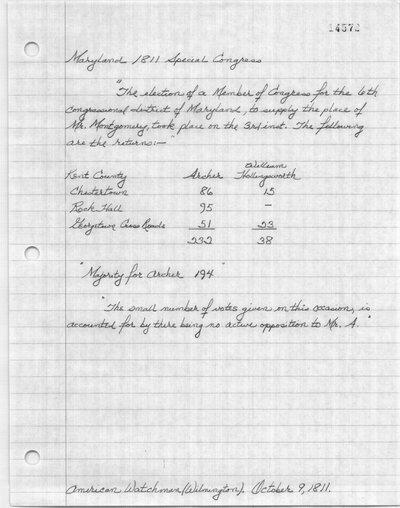 14572
Maryland 1811 Special Congress
"The election of a Member of Congress for the 6th
congressional district of Maryland, to supply the place of
Mr. Montgomery, took place on the 3rd inst. The following
are the returns:—"
Kent County Archer William Hollingsworth
Chestertown 86 15
Rock Hall 95 —
Georgetown Cross Roads 51 23
232 38
"Majority for Archer 194"
"The small number of votes given on this occasion, is
accounted for by there being no active opposition to Mr. A."
American Watchman (Wilmington). October 9, 1811.